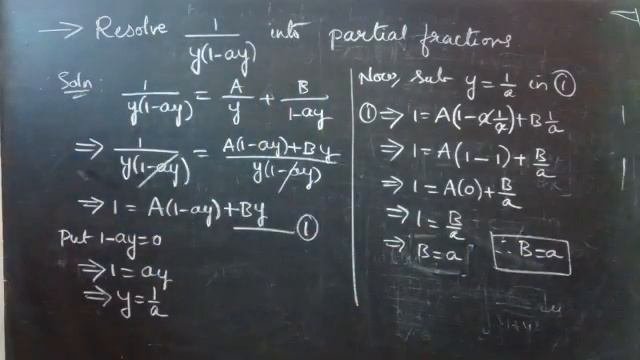 → Resolve 1/y(1-ay) into partial fractions
Soln: 1/y(1-ay) = A/y + B/1-ay
⇒ 1/y(1-ay) = A(1-ay)+By/y(1-ay)
⇒ 1 = A(1-ay)+By —— ①
Put 1-ay=0
⇒ 1=ay
⇒ y=1/a
Now, sub y=1/a in ①
① ⇒ 1=A(1-a 1/a)+B 1/a
⇒ 1=A(1-1)+B/a
⇒ 1=A(0)+B/a
⇒ 1=B/a
⇒ B=a ∴ B=a